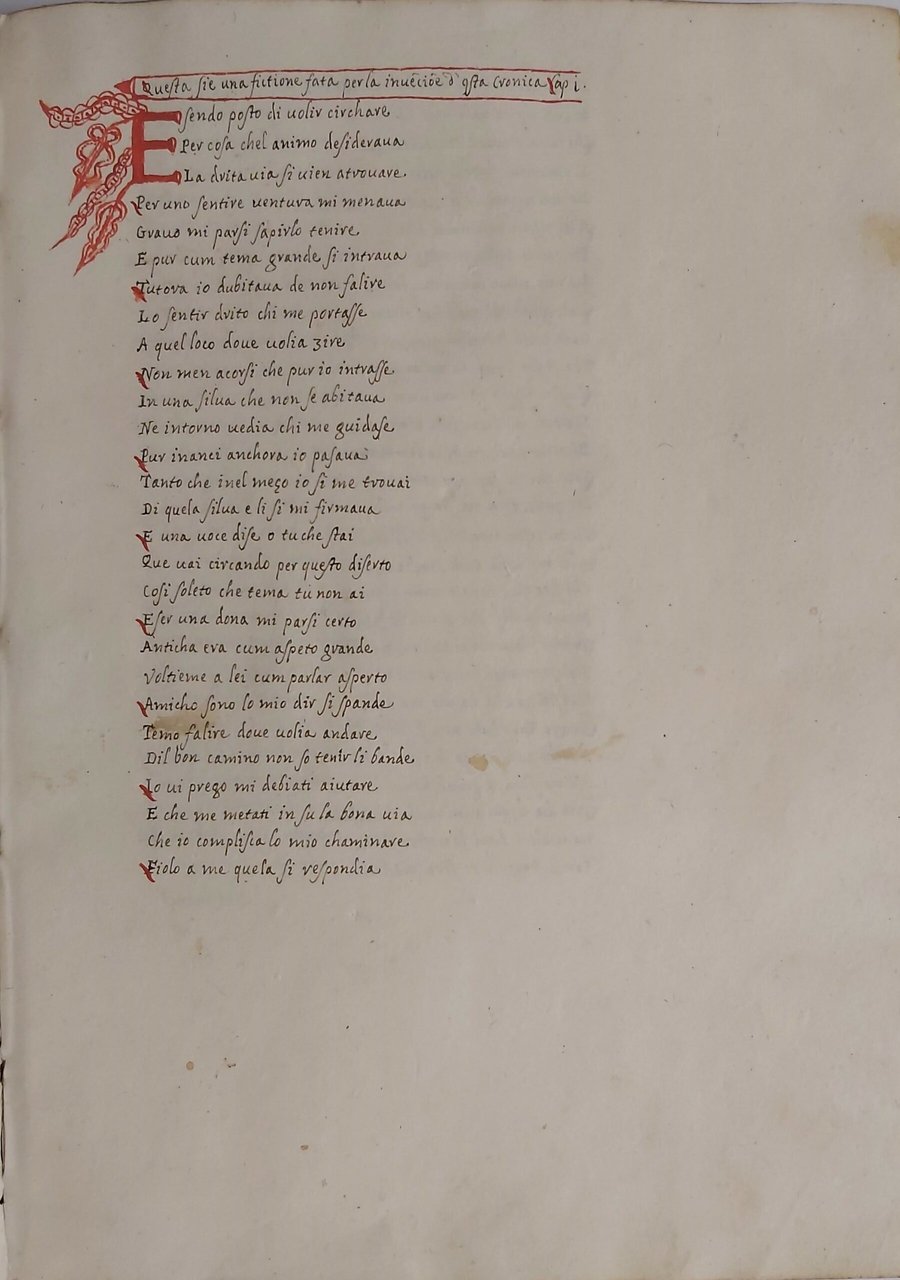 Questa sie una fictione fata per la inuēciōe d' q̄sta Cronica Cap i.
Esendo posto di uolir circhare
Per cosa chel animo desideraua
La drita uia si uien atrouare.
Per uno sentire uentura mi menaua
Grauo mi parsi sapirlo tenire
E pur cum tema grande si intraua
Tutora io dubitaua de non falire
Lo sentir drito chi me portasse
A quel loco doue uolia zire
Non men acorsi che pur io intrasse
In una silua che non se abitaua
Ne intorno uedia chi me guidase
Pur inanci anchora io pasaua
Tanto che inel meço io si me trouai
Di quela silua e li si mi firmaua
E una uoce dise o tu che stai
Que uai circando per questo diserto
Cosi soleto che tema tu non ai
Eser una dona mi parsi certo
Anticha era cum aspeto grande
Voltieme a lei cum parlar asperto
Amicho sono lo mio dir si spande
Temo falire doue uolia andare
Dil bon camino non so tenir li bande
Io ui prego mi debiati aiutare
E che me metati in su la bona uia
Che io complisca lo mio chaminare
Fiolo a me quela si respondia